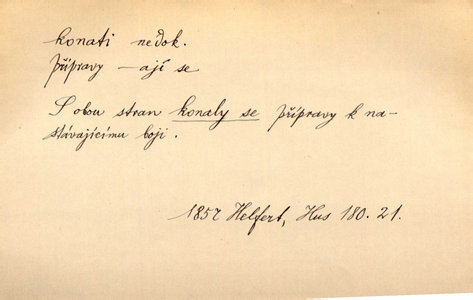 konati nedok.
přípravy — ají se
S obou stran konaly se přípravy k na-
stávajícímu boji.
1857 Helfert, Hus 180. 21.